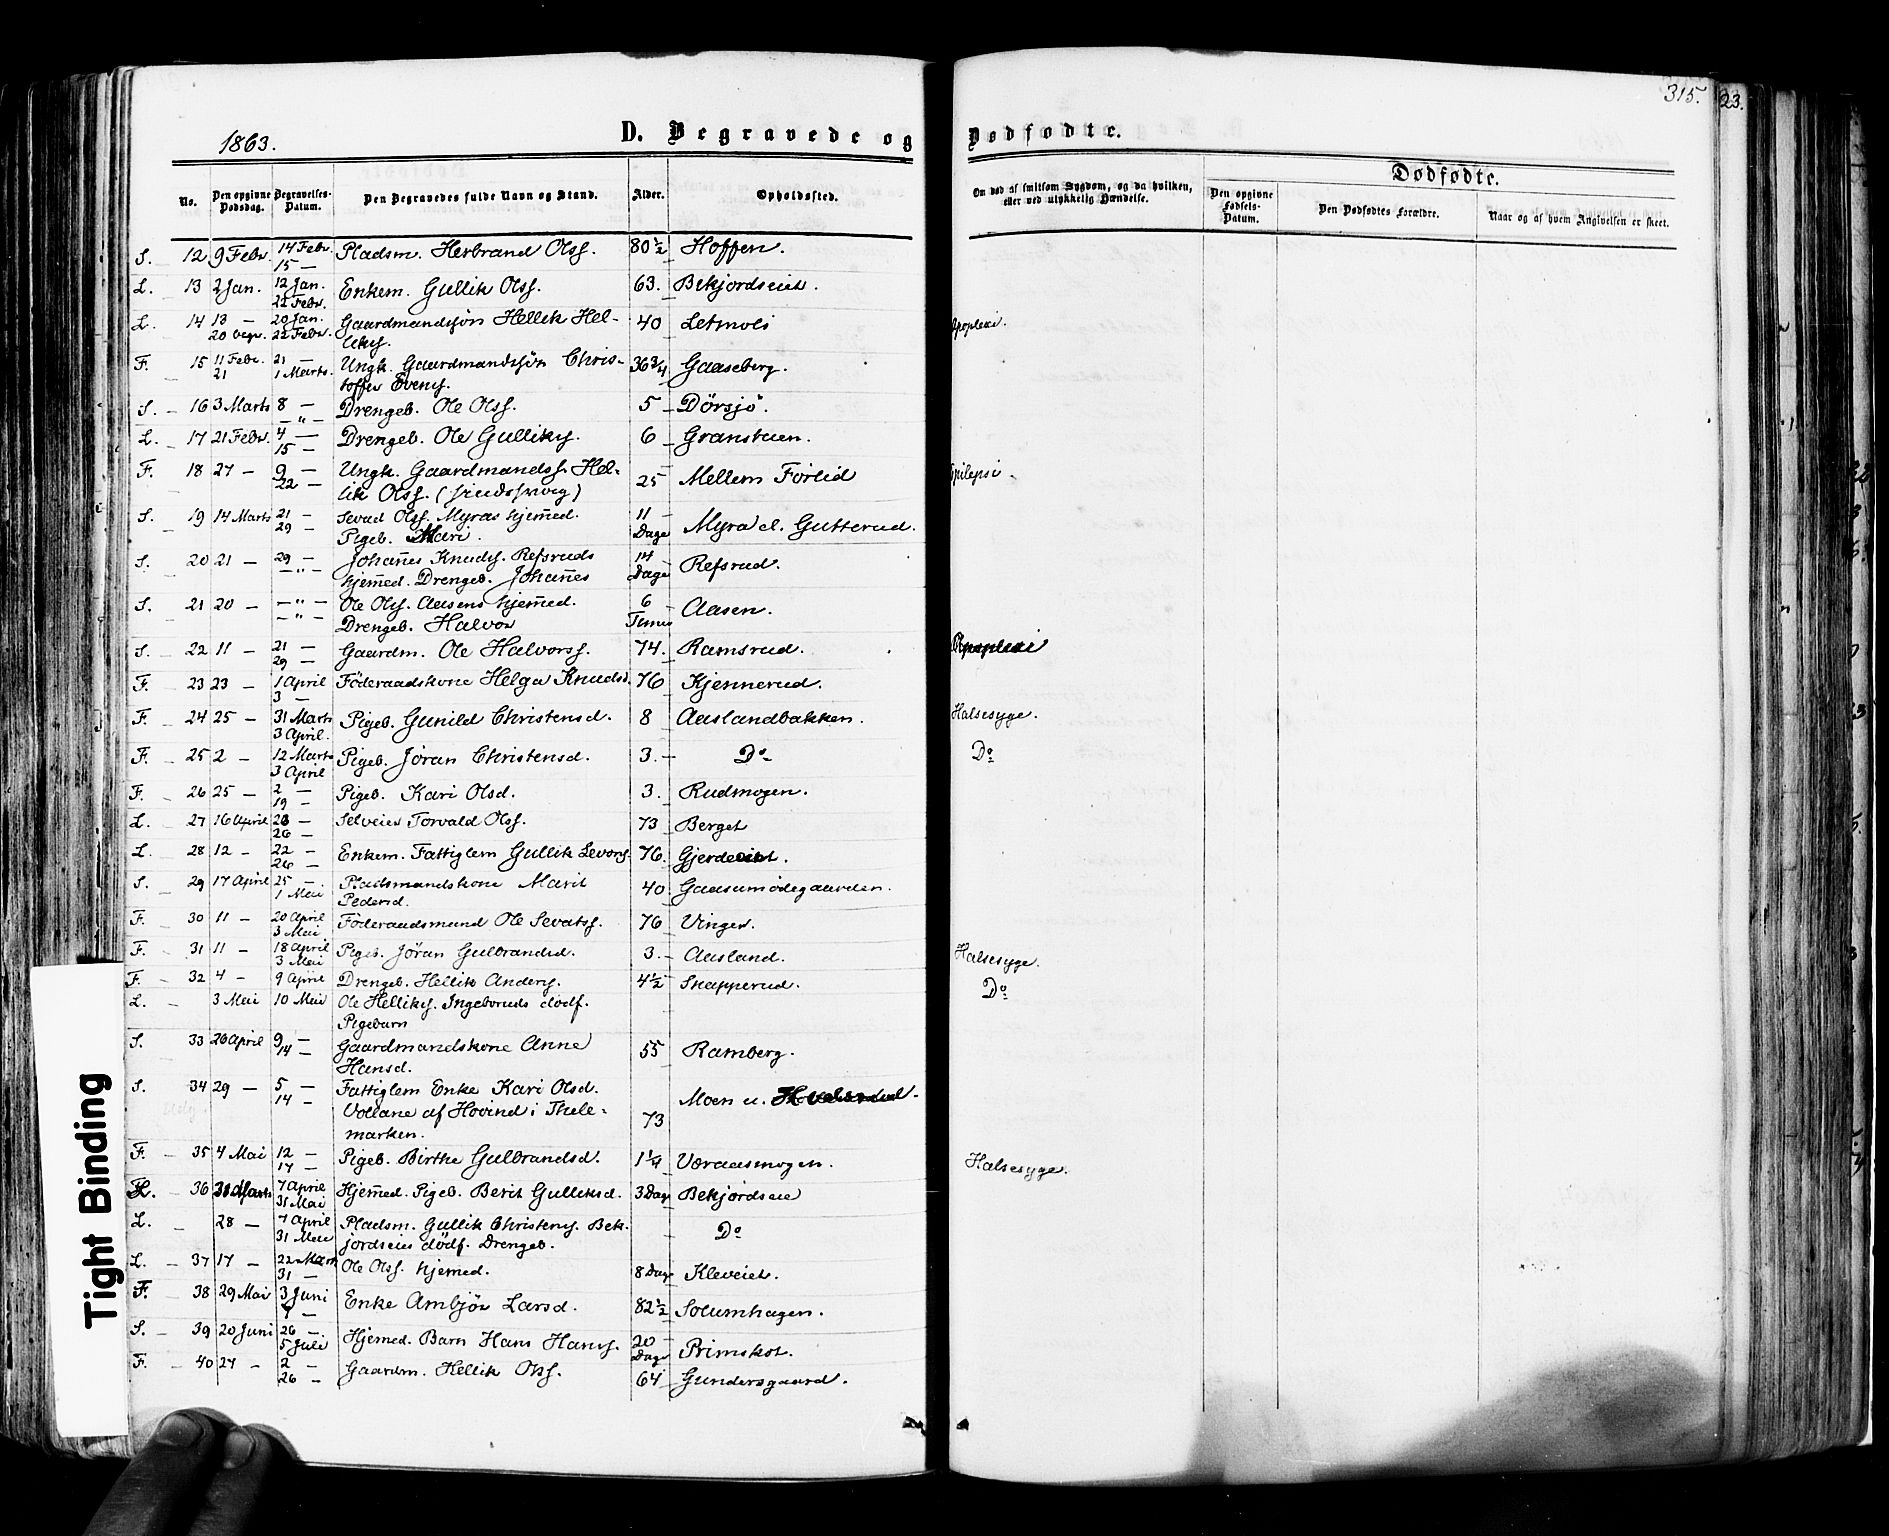 315.
23.
1863.
D. Begravede og Dødfødte.
No. Den opgivne Dødsdag. Begravelses-Datum. Den Begravedes fulde Navn og Stand. Alder. Opholdssted. Om død af smitsom Sygdom, og da hvilken, eller ved ulykkelig Hændelse. Dødfødte. Den opgivne Fødsels-Datum. Den Dødfødtes Forældre. Naar og af hvem Angivelsen er skeet.
S. 12 9 Febr. 14 Febr. Pladsm. Herbrand Olss. 80 1/2 Hoffen.
15 —
L. 13 2 Jan. 12 Jan. Enkem. Gullik Olss. 63. Bekjordseiet.
22 Febr.
L. 14 13 — 20 Jan. Gaardmandssøn Hellik Hel- 40 Letmoli Apoplexi.
20 begr. 22 Febr. liks.
F. 15 11 Febr. 21 — Ungk. Gaardmandssøn Chris- 36 3/4 Gaaseberg.
21 1 Marts. toffer Evens.
S. 16 3 Marts 8 — Drengeb. Ole Olss. 5 — Dörsjö.
— " —
L. 17 21 Febr. 4 — Drengeb. Ole Gulliks. 6 — Gransteien.
15 —
F. 18 27 — 9 — Ungk. Gaardmandss. Hel- 25 — Mellem Förlid Epilepsi.
22 — lik Olss. (sindssvag)
S. 19 14 Marts 21 — Sevad Olss. Myras hjemed. 11 — Myra el. Gutterud.
29 — Pigeb. Mari. Dage
S. 20 21 — 29 — Johannes Knuds. Refsruds 14 — Refsrud.
— " — hjemed. Drengeb. Johannes Dage
S. 21 20 — — " — Ole Olss. Aasens hjemed. 6 — Aasen.
— " — Drengeb. Halvor Timer
S. 22 11 — 21 — Gaardm. Ole Halvorss. 74. Ramsrud. Apoplexi
29 —
F. 23 23 — 1 April Föderaadskone Helga Knudsd. 76 Kjennerud.
3 —
F. 24 25 — 31 Marts Pigeb. Gunild Christensd. 8 Aaslandbakken. Halsesyge.
3 April.
F. 25 2 — 12 Marts Pigeb. Jöran Christensd. 3. — Do Do
3 April
F. 26 25 — 2 — Pigeb. Kari Olsd. 3. Rudmogen.
19 —
L. 27 16 April 23 — Selveier Torvald Olss. 73 Berget
26 —
L. 28 12 — 22 — Enkem. Fattiglem Gullik Levors. 76. Gjerdeeiet.
26 —
S. 29 17 April 25 — Pladsmandskone Marit 40. Gaasumödegaarden.
1 Mai Pedersd.
F. 30 11 — 20 April Föderaadsmand Ole Sevatss. 76 Vinger.
3 Mai
F. 31 11 — 18 April Pigeb. Jöran Gulbrandsd. 3. — Aasland. Halsesyge.
3 Mai
F. 32 4 — 9 April Drengeb. Hellik Anders. 4 1/2 Snapperud. Do
L. — 3 Mai 10 Mai Ole Helliks. Ingebruds dödf.
Pigebarn
S. 33 26 April 9 — Gaardmandskone Anne 55 Ramberg.
14 — Hansd.
S. 34 29 — 5 — Fattiglem Enke Kari Olsd. Moen u.
14 — Vollane af Hovind i Thele- 73
marken.
F. 35 4 Mai 12 — Pigeb. Birthe Gulbrandsd. 1 1/4 Væraasmogen. Halsesyge.
17 —
L. 36 31 Marts 7 April Hjemed. Pigeb. Berit Gulliksd. 3 Dage Bekjordseie
31 Mai
L. — 28 — 7 April Pladsm. Gullik Christens. Bek- Do
31 Mai jordseies dödf. Drengeb.
L. 37 17 — 22 Marts Ole Olss. hjemed. 8 Dage Kleveiet.
31 —
F. 38 29 Mai 3 Juni Enke Ambjör Larsd. 82 1/2 Solumhagen.
7 —
S. — 39 20 Juni 26 — Hjemed. Barn Hans Hanss. 20 — Primskot.
5 Juli Dage
F. — 40 27 — 2 — Gaardm. Hellik Olss. 64 Gundersgaard.
26 —
Tight Binding